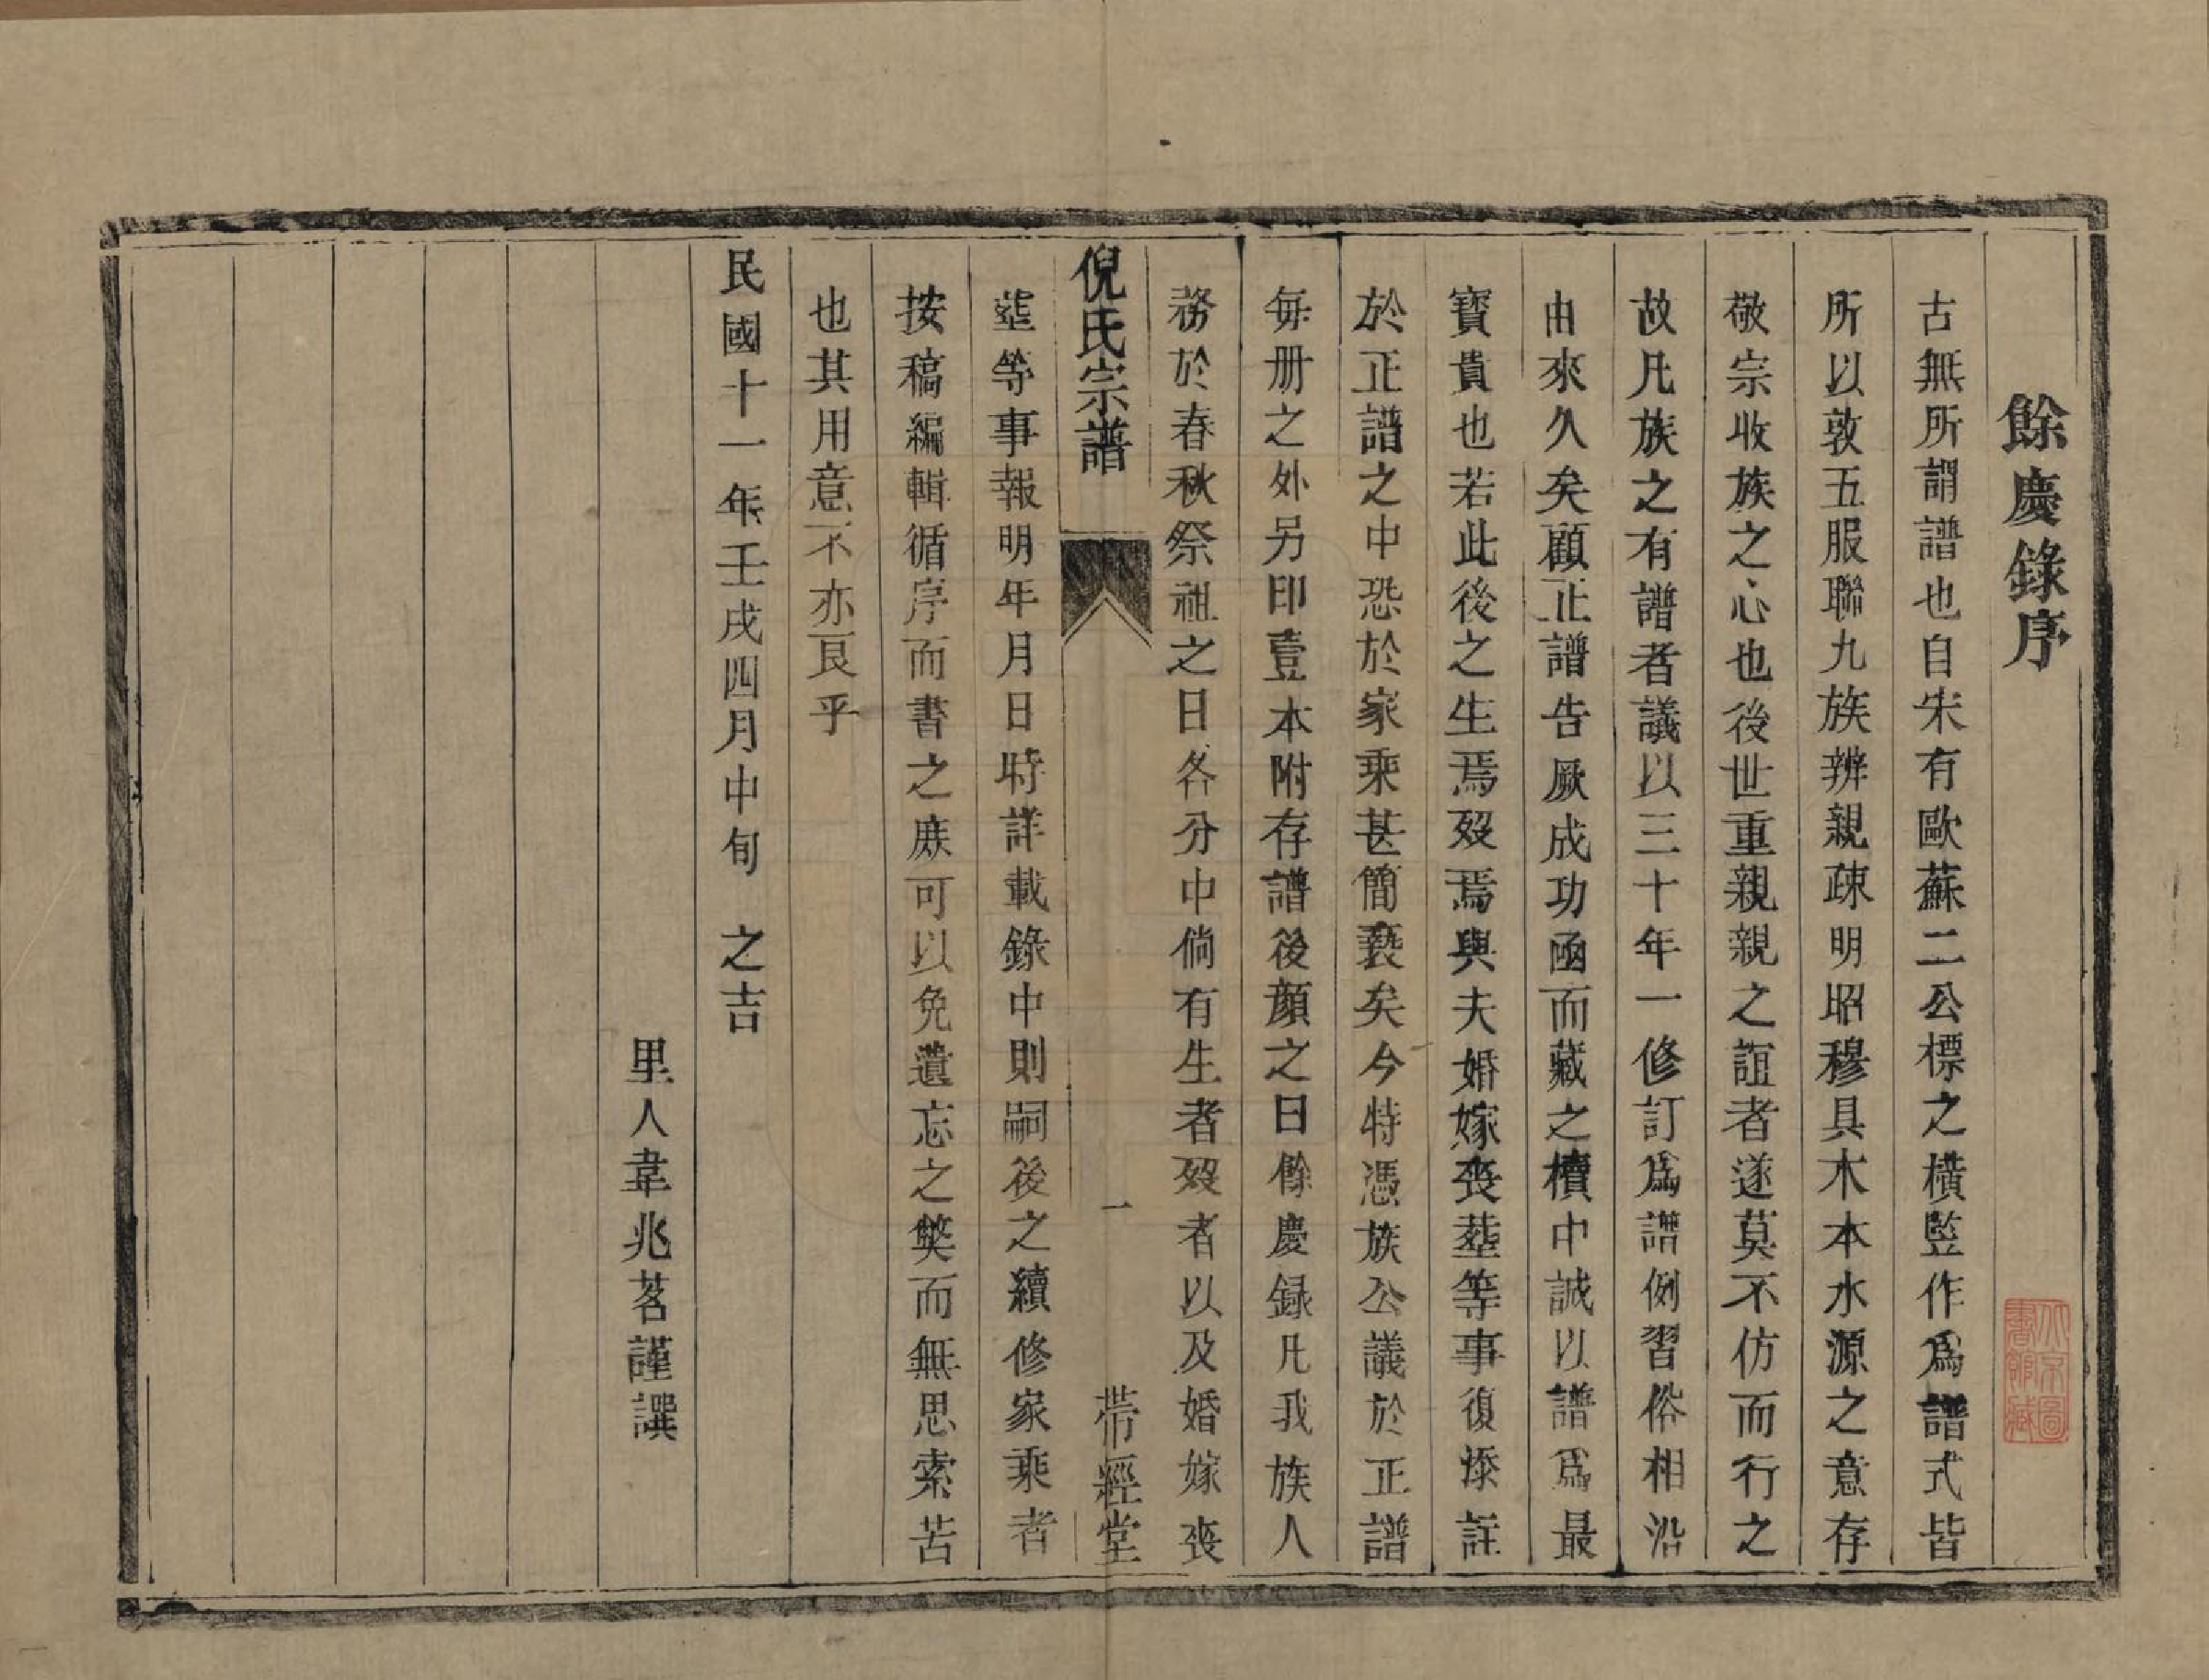 餘慶錄序
古無所謂譜也自宋有歐蘇二公標之橫監作爲譜式皆
所以敦五服聯九族辨親疎明昭穆具木本水源之意存
敬宗收族之心也後世重親親之誼者遂莫不仿而行之
故凡族之有譜者議以三十年一修訂爲譜例習俗相沿
由來久矣顧正譜告厥成功函而藏之櫝中誠以譜爲最
寶貴也若此後之生焉歿焉與夫婚嫁喪塟等事復添註
於正譜之中恐於家乘甚簡褻矣今特憑族公議於正譜
每册之外另印壹本附存譜後顏之日餘慶録凡我族人
務於春秋祭祖之日各分中倘有生者歿者以及婚嫁喪
倪氏宗譜
一
帶經堂
塟等事報明年月日時詳載錄中則嗣後之續修家乘者
按稿編輯循序而書之庶可以免遺忘之獘而無思索苦
也其用意不亦艮乎
民國十一年壬戌四月中旬 之吉
里人韋兆茗謹譔
北京圖書館藏